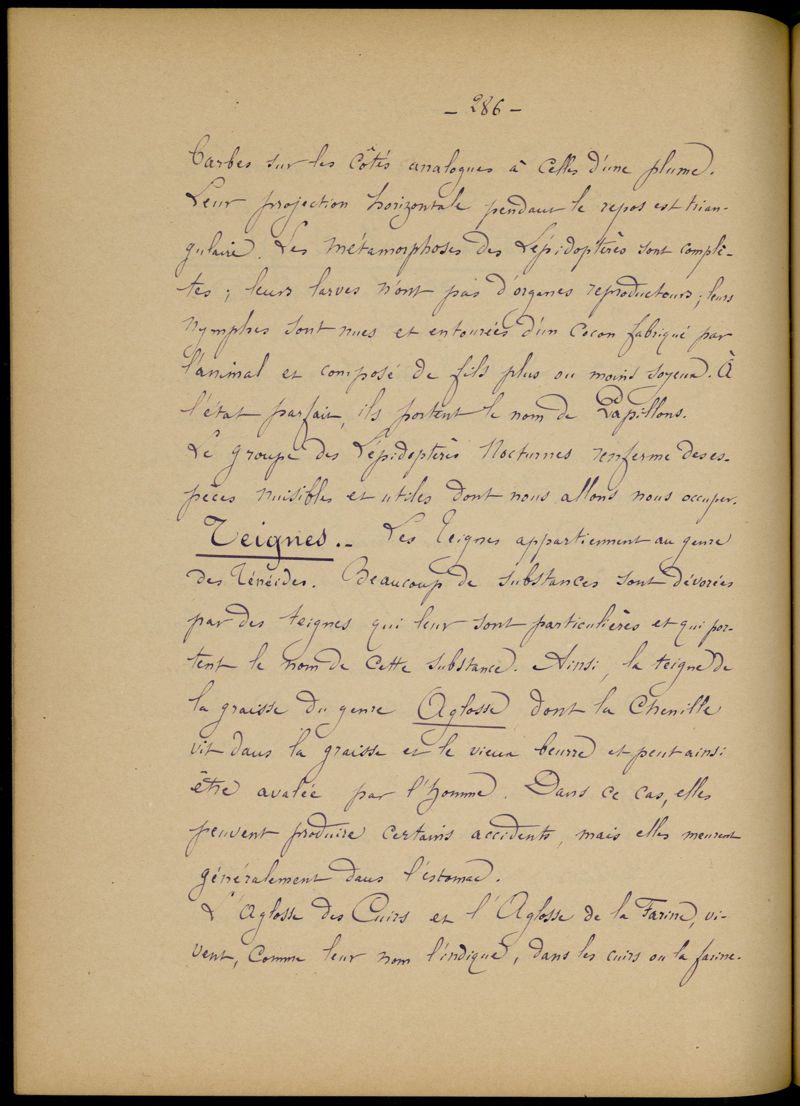 - 286 -
barbes sur les côtés analogues à celles d'une plume.
Leur projection horizontale pendant le repos est trian-
gulaire. Les métamorphoses des Lépidoptères sont complè-
tes ; leurs larves n'ont pas d'organes reproducteurs ; leurs
nymphes sont nues et entourées d'un cocon fabriqué par
l'animal et composé de fils plus ou moins soyeux. À
l'état parfait, ils portent le nom de Papillons.
Le groupe des Lépidoptères Nocturnes renferme des es-
pèces nuisibles et utiles dont nous allons nous occuper.
Teignes.- Les Teignes appartiennent au genre
des Ténéides. Beaucoup de substances sont dévorées
par des teignes qui leur sont particulières et qui por-
tent le nom de cette substance. Ainsi, la teigne de
la graisse du genre Aglosse dont la Chenille
vit dans la graisse et le vieux beurre et peut ainsi
être avalée par l'homme. Dans ce cas, elles
peuvent produire certains accidents, mais elles meurent
généralement dans l'estomac.
L'Aglosse des Cuirs et l'Aglosse de la Farine, vi-
vent, comme leur nom l'indique, dans les cuirs ou la farine.